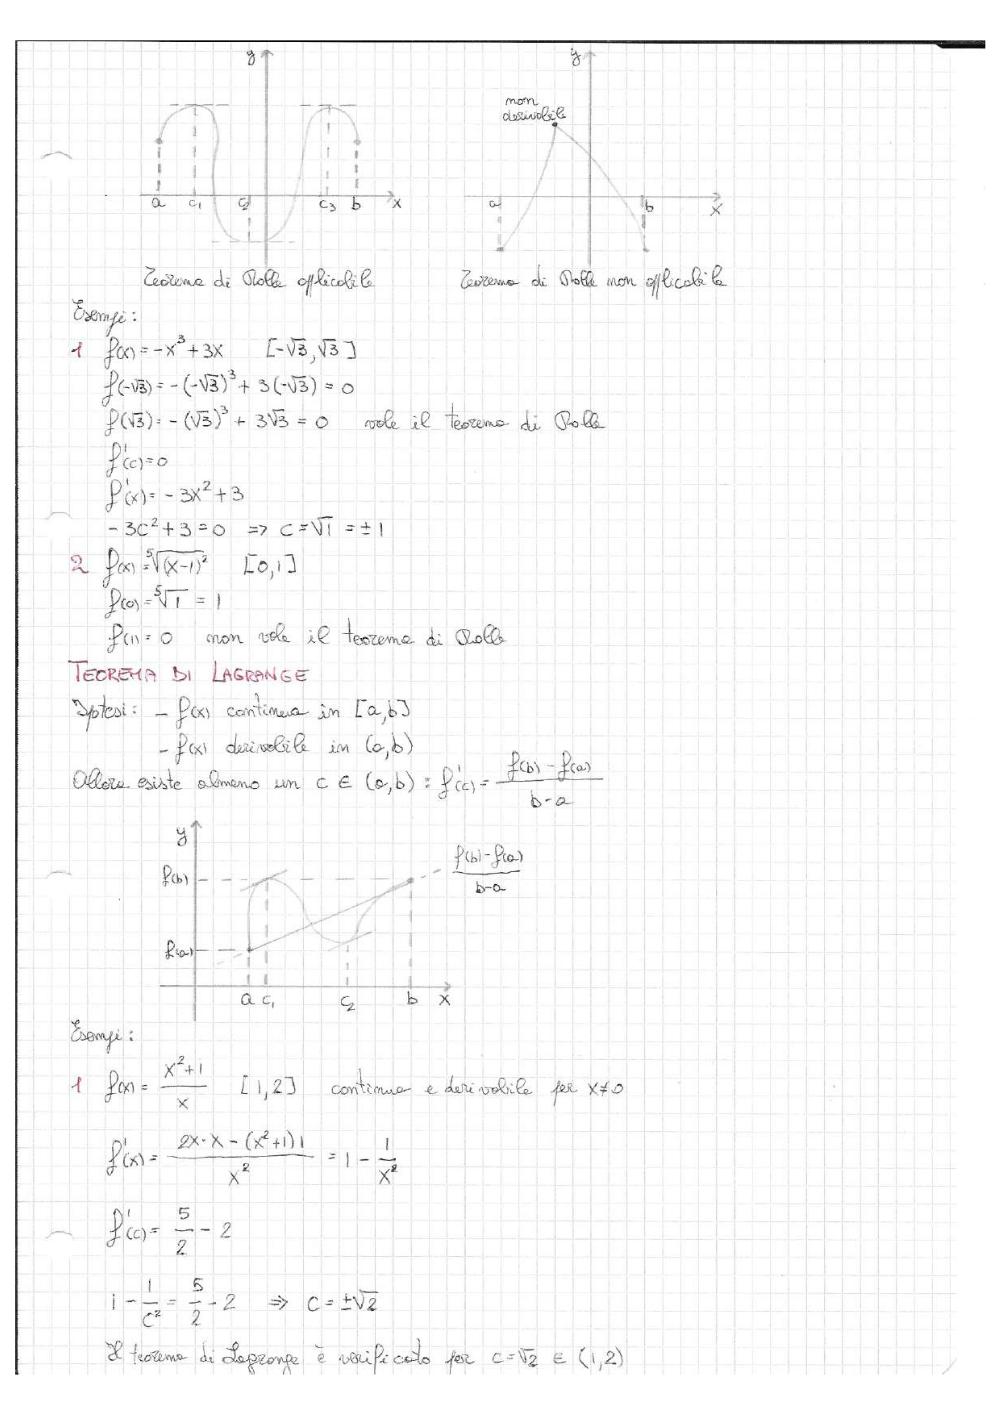 y y
non
derivabile
a c₁ c₂ c₃ b x a b x
Teorema di Rolle applicabile Teorema di Rolle non applicabile
Esempi:
1 f(x) = -x³ + 3x [-√3, √3]
f(-√3) = -(-√3)³ + 3(-√3) = 0
f(√3) = -(√3)³ + 3√3 = 0 vale il teorema di Rolle
f'(c) = 0
f'(x) = -3x² + 3
-3c² + 3 = 0 => c = √1 = ±1
2 f(x) = ⁵√(x-1)² [0,1]
f(0) = ⁵√1 = 1
f(1) = 0 non vale il teorema di Rolle
TEOREMA DI LAGRANGE
Iptesi: - f(x) continua in [a,b]
- f(x) derivabile in (a,b)
Allora esiste almeno un c ∈ (a,b) : f'(c) = (f(b) - f(a))/(b-a)
y
f(b) (f(b) - f(a))/(b-a)
f(a)
a c₁ c₂ b x
Esempi:
1 f(x) = (x²+1)/x [1,2] continua e derivabile per x≠0
f'(x) = (2x·x - (x²+1)1)/x² = 1 - 1/x²
f'(c) = 5/2 - 2
1 - 1/c² = 5/2 - 2 => c = ±√2
Il teorema di Lagrange è verificato per c = √2 ∈ (1,2)